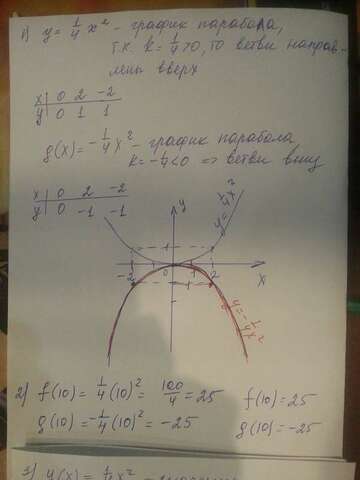 1) y = 1/4 x² - график парабола,
т.к. k = 1/4 > 0, то ветви направ-
лены вверх
x | 0 2 -2
y | 0 1 1
g(x) = -1/4 x² - график парабола
k = -1/4 < 0 => ветви вниз
x | 0 2 -2
y | 0 -1 -1
y
y = 1/4 x²
1
-2 0 1 2 x
-1
y = -1/4 x²
2) f(10) = 1/4 (10)² = 100/4 = 25 f(10) = 25
g(10) = -1/4 (10)² = -25 g(10) = -25